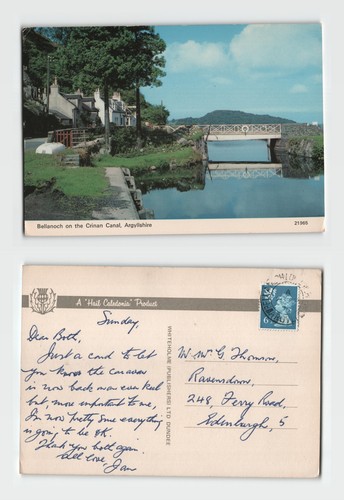 Bellanoch on the Crinan Canal, Argyllshire
21965
A "Hail Caledonia" Product
Sunday,
Dear Both,
Just a card to let
you know the caravan
is now back on an even keel
but, more important to me,
I'm now pretty sure everything
is going to be OK.
Thank you both again.
All love,
WHITEHOLME (PUBLISHERS) LTD DUNDEE
Thomson,
Ravensdown,
248, Ferry Road,
Edinburgh, 5